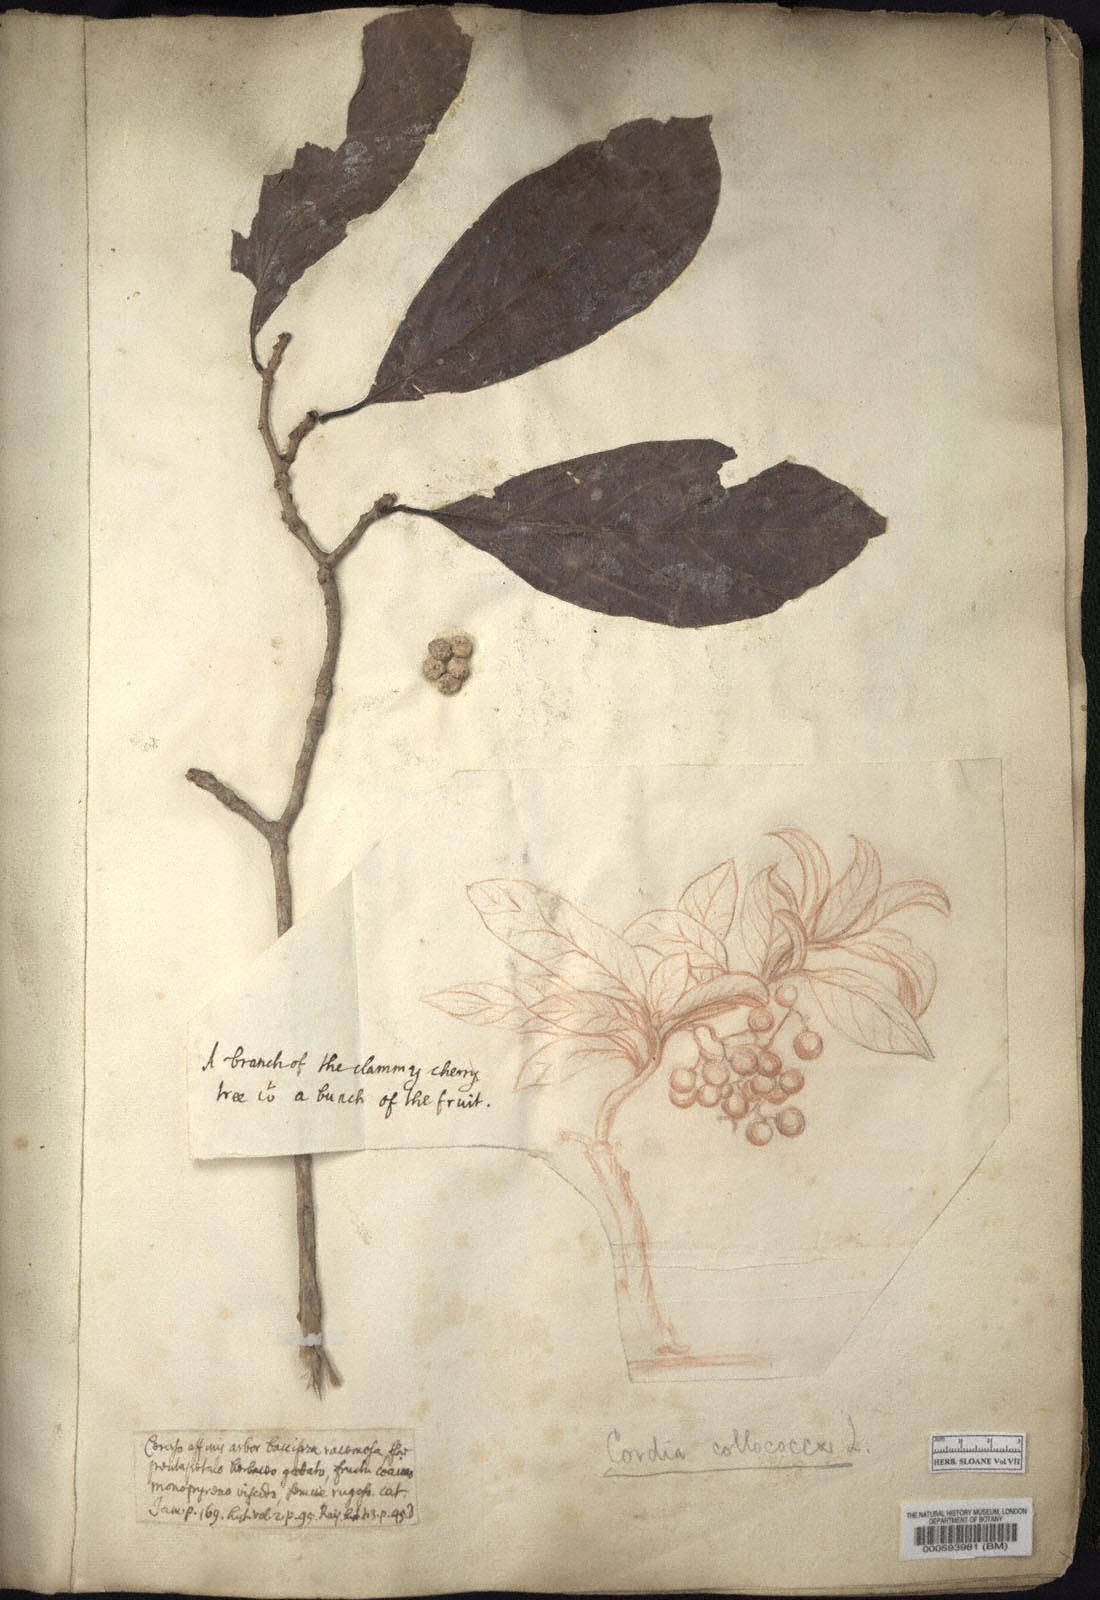 A branch of the clammy cherry
tree wt a bunch of the fruit.
affinis arbor baccifera racemosa,
pentapetalo herbaceo fructu coccineo
monopyreno viscido, rugoso. cat.
Jam. p. 169. hist. vol. 2. p. 95. Raij hist. 3. p. 95
Cordia collococca L.
HERB. SLOANE Vol VII
THE NATURAL HISTORY MUSEUM, LONDON
DEPARTMENT OF BOTANY
000593981 (BM)